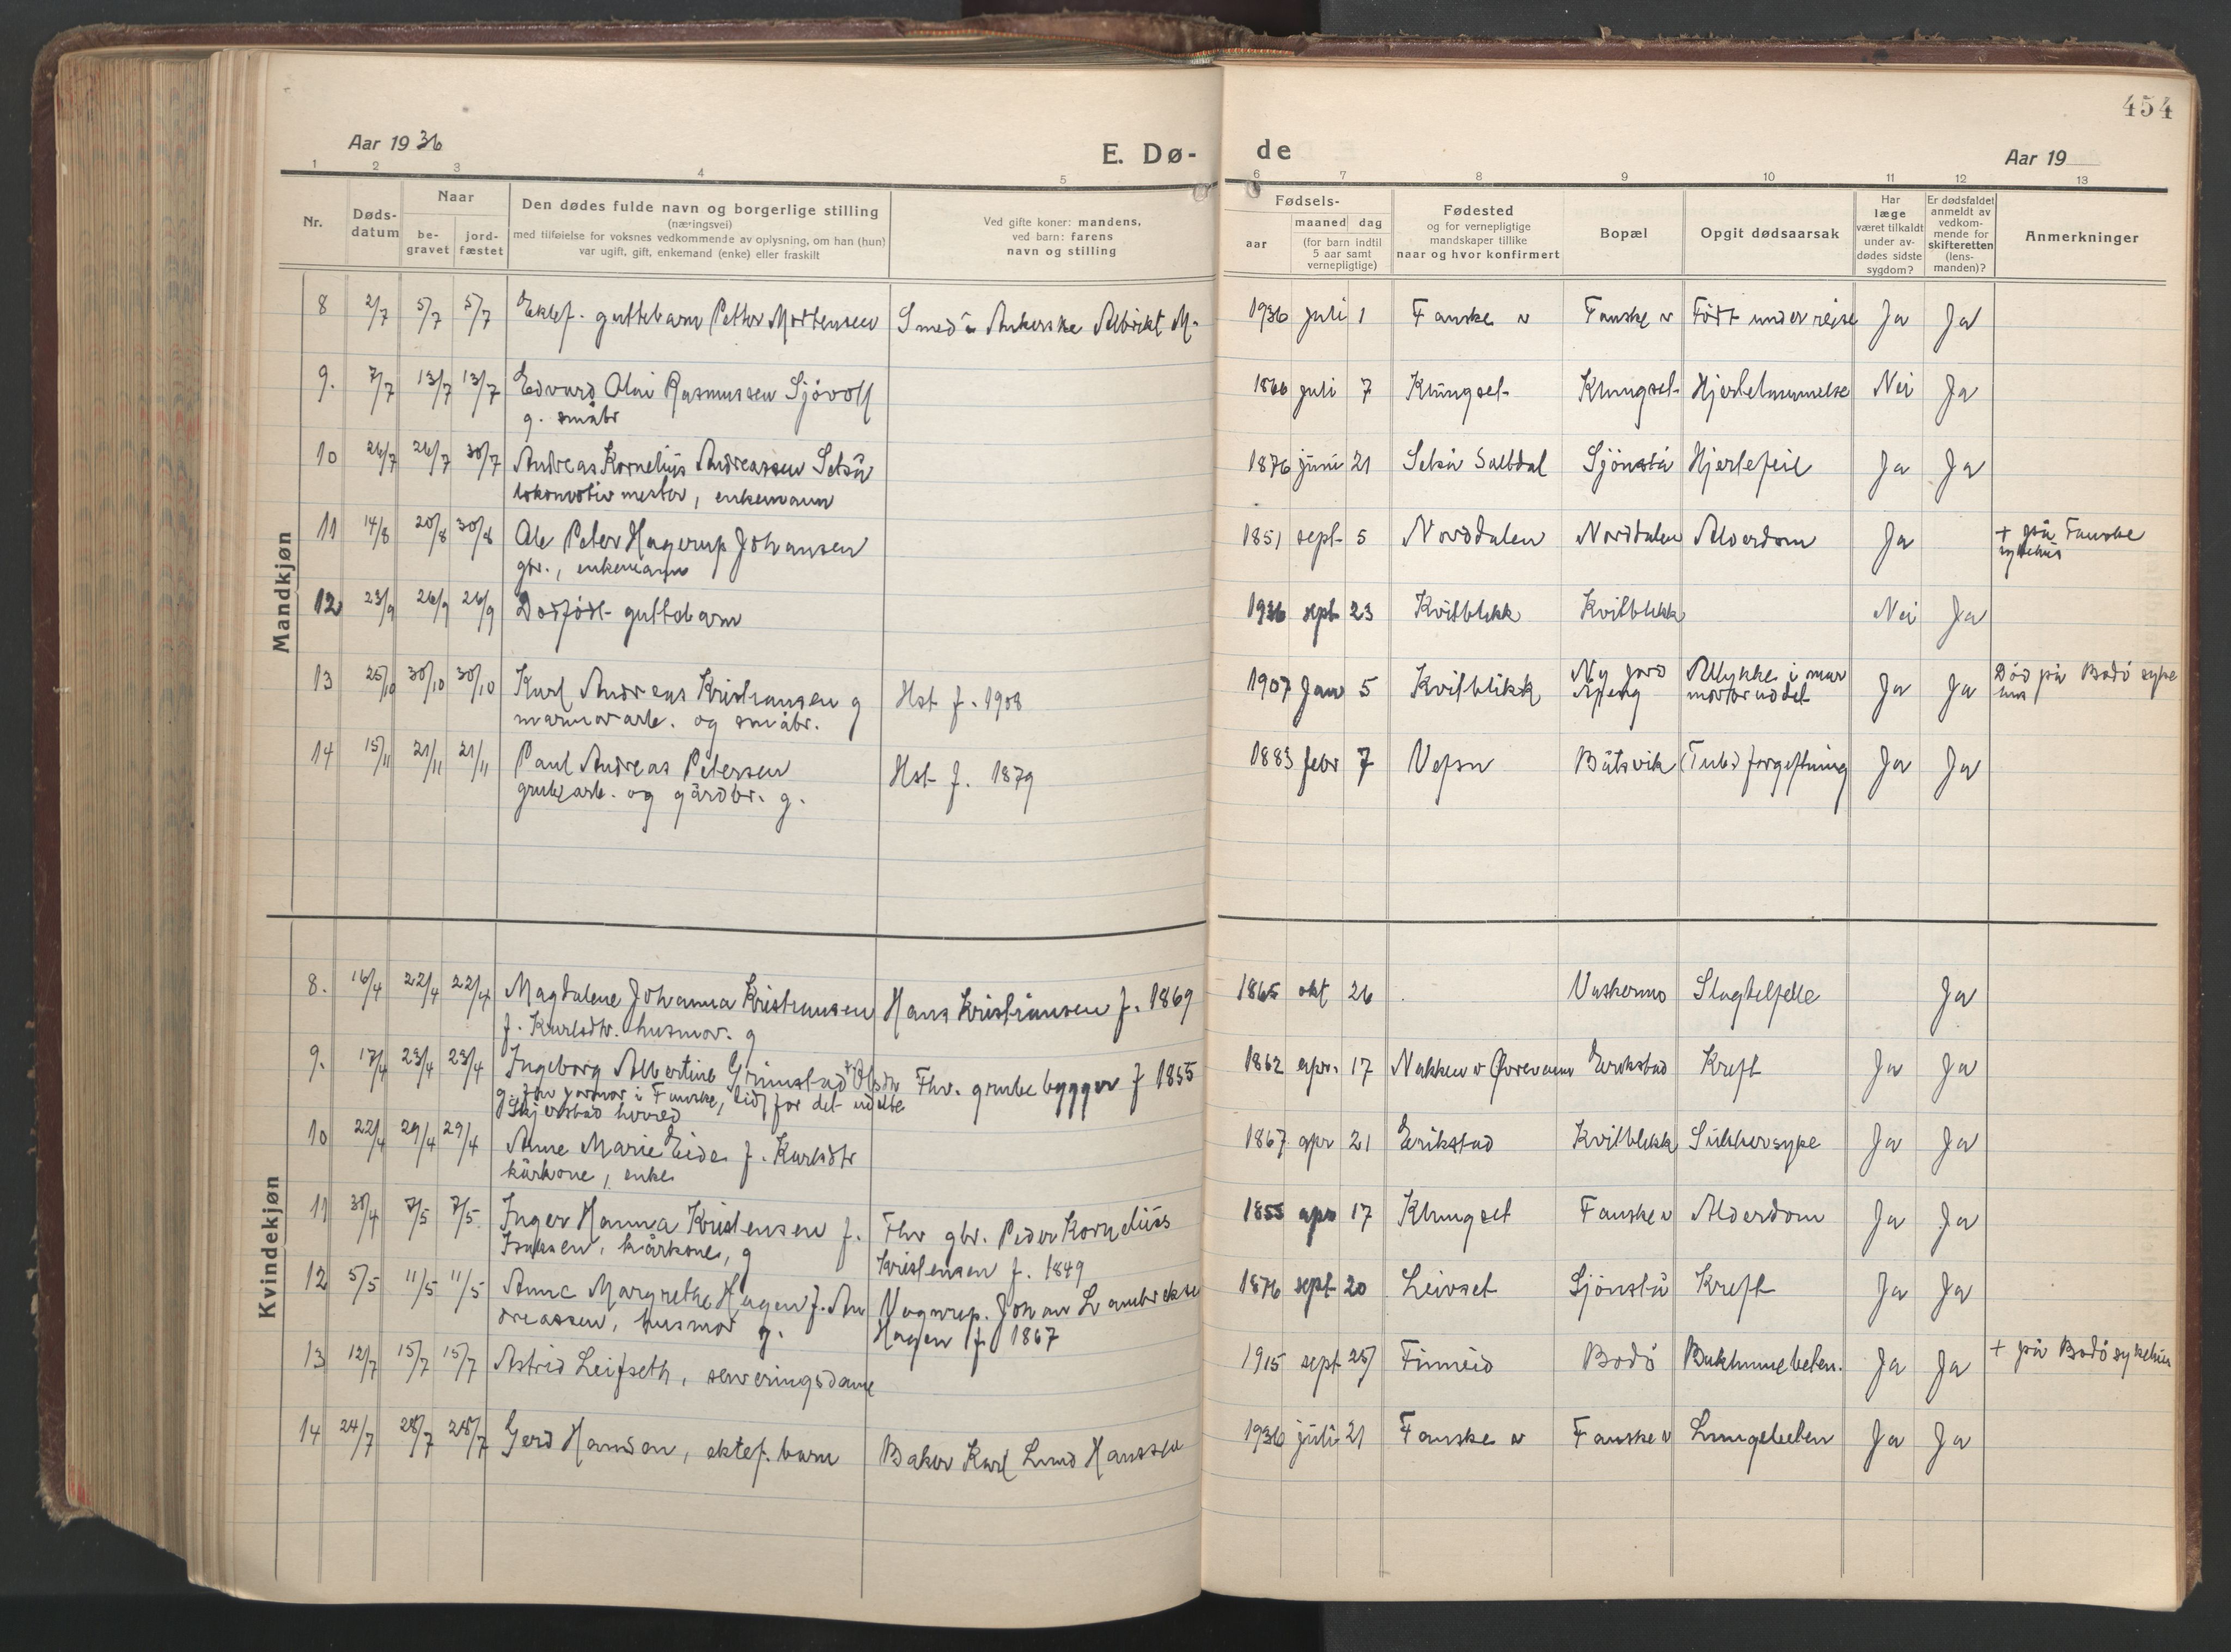 454
Aar 1936
E. Dø-
de
Aar 19
1 2 3 4 5 6 7 8 9 10 11 12 13
Nr.
Døds-
datum
Naar
be-
gravet
jord-
fæstet
Den dødes fulde navn og borgerlige stilling
(næringsvei)
med tilføielse for voksnes vedkommende av oplysning, om han (hun)
var ugift, gift, enkemand (enke) eller fraskilt
Ved gifte koner: mandens,
ved barn: farens
navn og stilling
Fødsels-
aar
maaned dag
(for barn indtil
5 aar samt
vernepligtige)
Fødested
og for vernepligtige
mandskaper tillike
naar og hvor konfirmert
Bopæl
Opgit dødsaarsak
Har
læge
været tilkaldt
under av-
dødes sidste
sygdom?
Er dødsfaldet
anmeldt av
vedkom-
mende for
skifteretten
(lens-
manden)?
Anmerkninger
Mandkjøn
8 2/7 5/7 5/7 Ektef. guttebarn Petter Mortensen Smed Ankerske Albrikt M. 1936 juli 1 Fauske v Fauske v Født under reise Ja Ja
9. 7/7 13/7 13/7 Edvard Olai Rasmussen Sjövoll 1866 juli 7 Klungset Klungset Hjertelammelse Nei Ja
g. småbr
10 26/7 26/7 30/7 Andreas Kornelius Andreassen Setså 1876 juni 21 Setså Saltdal Sjönstå Hjertefeil Ja Ja
lokomotivmester, enkemann
11 14/8 20/8 30/8 Ole Peter Hagerup Johansen 1851 sept 5 Norddalen Norddalen Alderdom Ja + på Fauske
gbr., enkemann sykehus
12 23/9 26/9 26/9 Dødfödt guttebarn 1936 sept 23 Kvitblikk Kvitblikk Nei Ja
13 25/10 30/10 30/10 Karl Andreas Kristiansen g Hst f. 1908 1907 Jan 5 Kvitblikk Ny jord Ulykke i mar Ja Ja Död på Bodö syke
marmorarb. og småbr. morbruddet hus
14 15/11 21/11 21/11 Paul Andreas Petersen Hst f. 1879 1883 febr 7 Vefsn Båtsvik forgiftning Ja Ja
grubearb. og gårdbr. g.
Kvindekjøn
8. 16/4 22/4 22/4 Magdalene Johanna Kristiansen Hans Kristiansen f. 1869 1865 okt 26 Vaskermo Slagtilfelle Ja
f. Karlsdtr. husmor. g
9. 17/4 23/4 23/4 Ingeborg Albertine Grimstad f Olsdtr Fhv. grubebygger f 1855 1862 apr. 17 Nakken Erikstad Kreft Ja Ja
g. fhv jormor i Fauske, tidl for det udelte
Skjerstad herred
10 22/4 29/4 29/4 Anne Marie Eide f. Karlsdtr 1867 apr 21 Erikstad Kvitblikk Sukkersyke Ja Ja
kårkone, enke
11 30/4 7/5 7/5 Inger Hanna Kristensen f. Fhv gbr. Peder Kornelius 1855 apr 17 Klungset Fauske v Alderdom Ja Ja
Isaksen, kårkone, g Kristensen f. 1849
12 5/5 11/5 11/5 Anna Margrethe Hagen f. An Vognrep. Johan Lambrektse 1876 sept 20 Leivset Sjönstå Kreft Ja Ja
dreassen, husmor g. Hagen f. 1867
13 12/7 15/7 15/7 Astrid Leifseth, serveringsdame 1915 sept 25 Finneid Bodö Bukhinnebeten. Ja Ja + på Bodö sykehus
14 24/7 28/7 28/7 Gerd Hansen, ektef. barn Baker Karl Lund Hanssen 1936 juli 21 Fauske v Fauske v Lungebeten Ja Ja